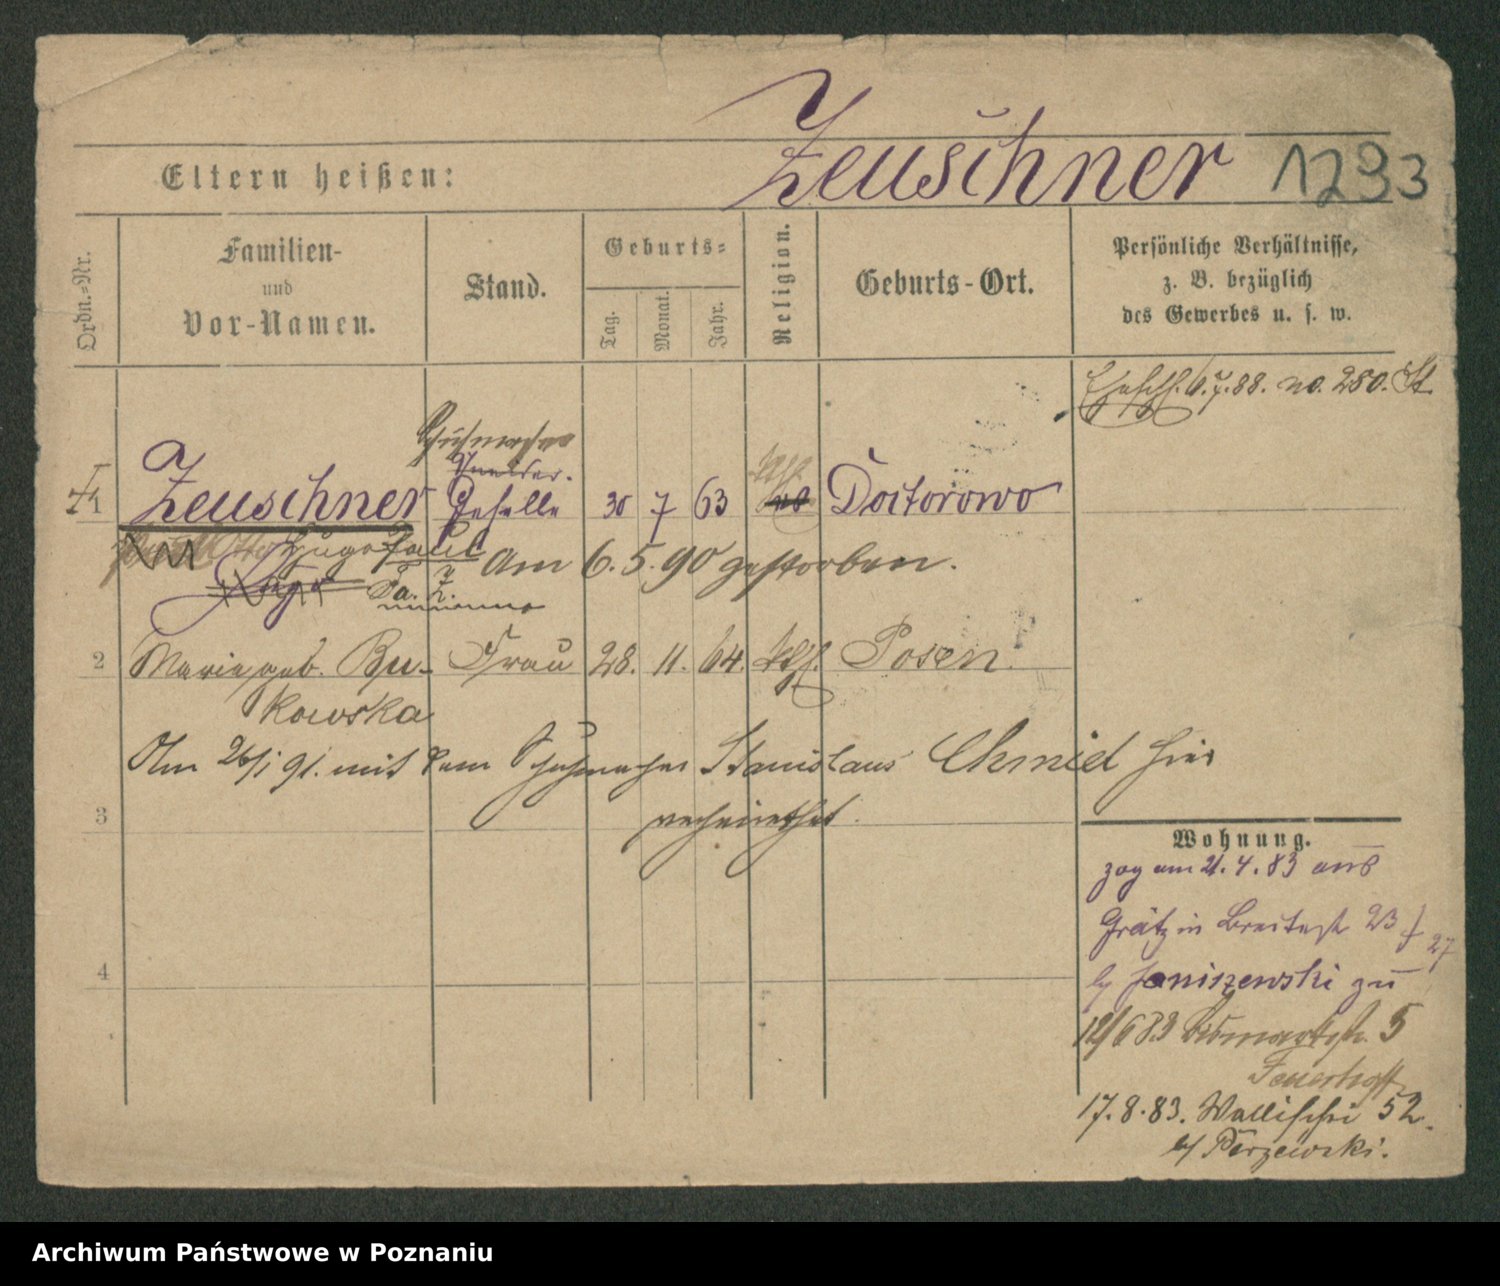 Zeuschner 1293
Eltern heißen:
Ordn.-Nr.
Familien-
und
Vor-Namen.
Stand.
Geburts-
Tag.
Monat.
Jahr.
Religion.
Geburts-Ort.
Persönliche Verhältnisse,
z. B. bezüglich
des Gewerbes u. s. w.
6.7.88. no. 250. St
Schuhmacher
1 Zeuschner Geselle 30 7 63 Doktorowo
Hugo Paul am 6.5.90 gestorben.
Hugo
2 Marie geb. Bu- Frau 28. 11. 64. kth. Posen
kowska
Am 26/1 91. mit dem Schuhmacher Stanislaus Chmiel hier
3 verheirathet.
Wohnung.
zog am 21.4.83 aus
Grätz in Breitestr 23
27
b/ Janiszewski zu
4
12/6 83 Bismarckstr. 5
17.8.83. Wallischei 52.
b/
Archiwum Państwowe w Poznaniu